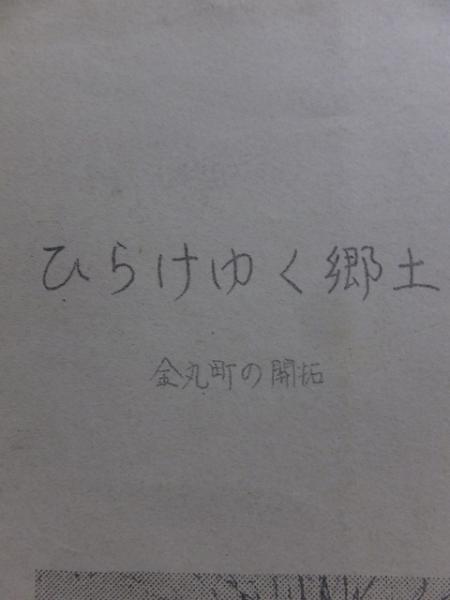 ひらけゆく郷土
金丸町の開拓